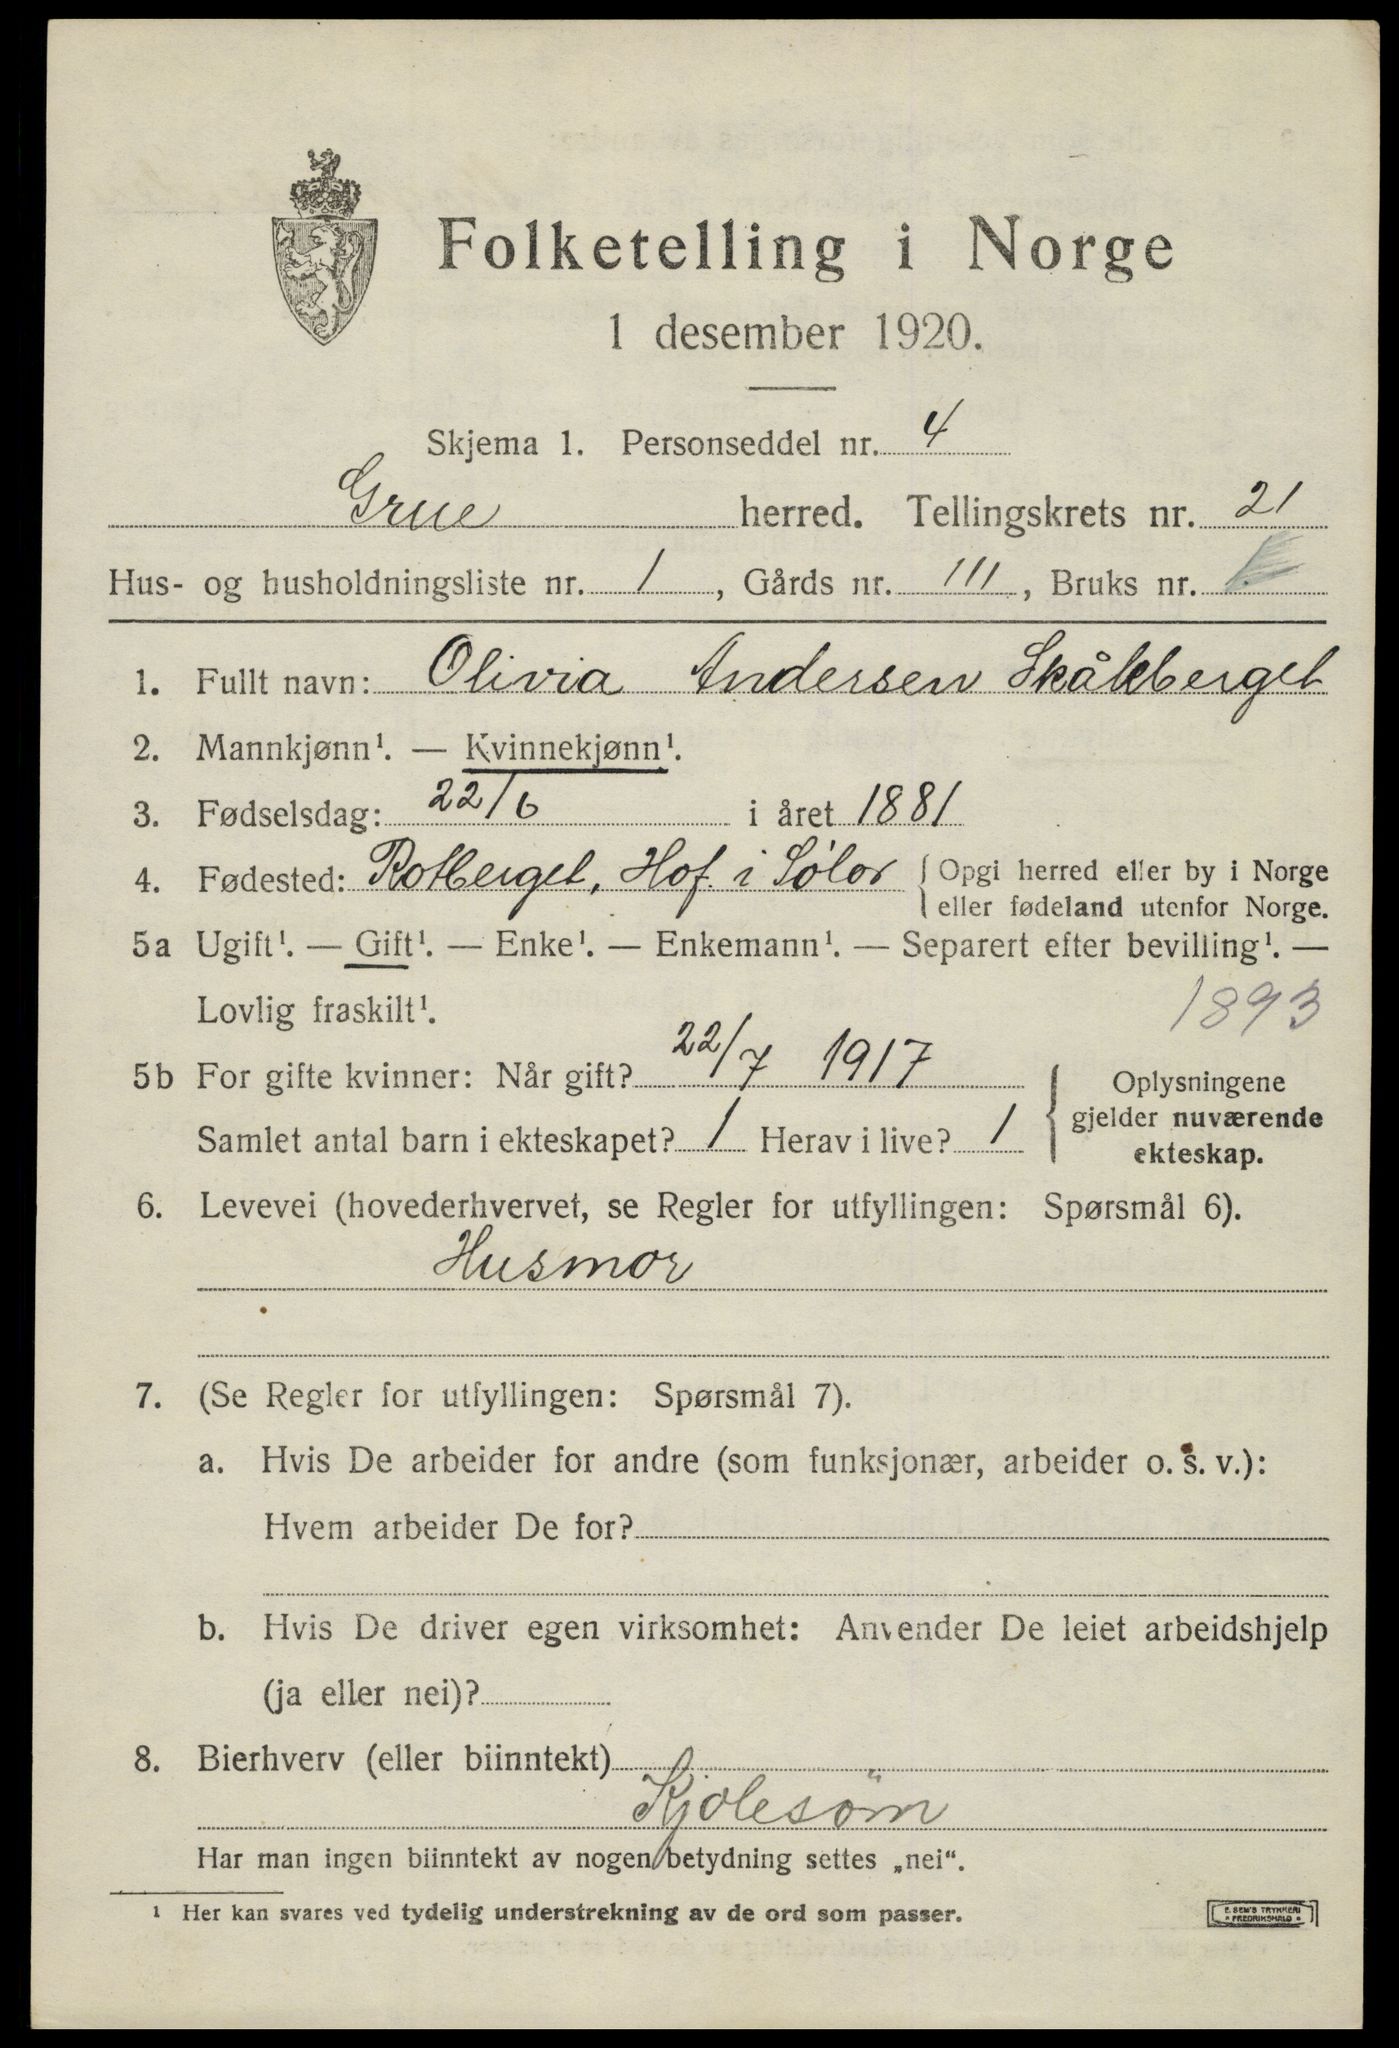 Folketelling i Norge
1 desember 1920.
Skjema 1. Personseddel nr. 4
Grue herred. Tellingskrets nr. 21
Hus- og husholdningsliste nr. 1, Gårds nr. 111, Bruks nr.
1. Fullt navn: Olivia Andersen Skålberget
2. Mannkjønn¹. — Kvinnekjønn¹.
3. Fødselsdag: 22/6 i året 1881
4. Fødested: Rotberget, Hof i Solør { Opgi herred eller by i Norge
eller fødeland utenfor Norge.
5a Ugift¹. — Gift¹. — Enke¹. — Enkemann¹. — Separert efter bevilling¹. —
Lovlig fraskilt¹. 1893
5b For gifte kvinner: Når gift? 22/7 1917 { Oplysningene
gjelder nuværende
ekteskap.
Samlet antal barn i ekteskapet? 1 Herav i live? 1
6. Levevei (hovederhvervet, se Regler for utfyllingen: Spørsmål 6).
Husmor
7. (Se Regler for utfyllingen: Spørsmål 7).
a. Hvis De arbeider for andre (som funksjonær, arbeider o. s. v.):
Hvem arbeider De for?
b. Hvis De driver egen virksomhet: Anvender De leiet arbeidshjelp
(ja eller nei)?
8. Bierhverv (eller biinntekt)
Kjolesöm
Har man ingen biinntekt av nogen betydning settes „nei“.
¹ Her kan svares ved tydelig understrekning av de ord som passer.
E. SEM'S TRYKKERI
FREDRIKSHALD